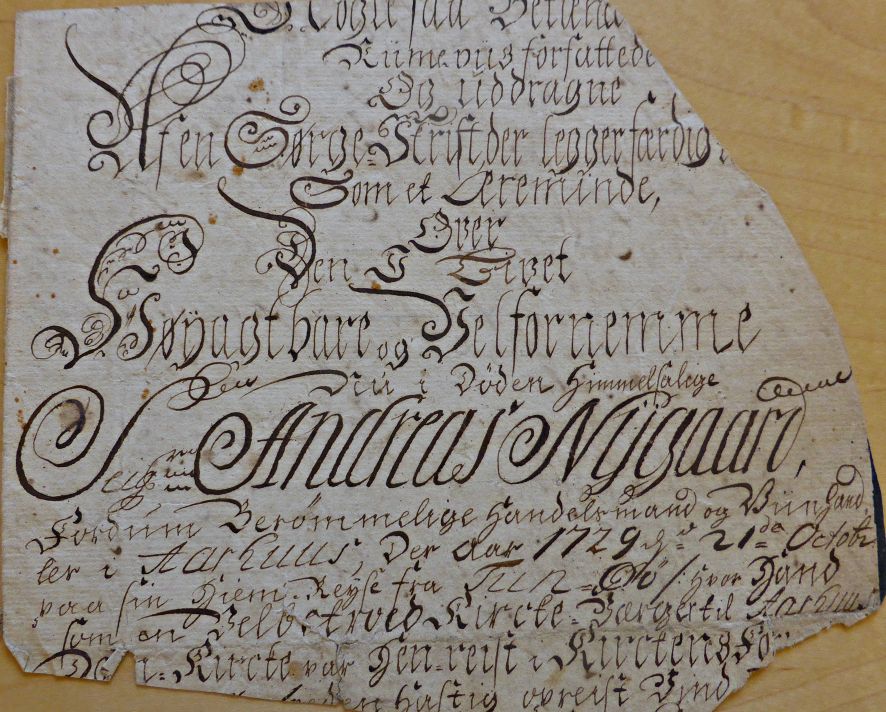 Nogle faa Betænd
Riimeviis forfattede
Og uddragne
Af en Sørge-Skrift der legger færdig,
Som et Æreminde,
Over
Den I Livet
Høyagtbare og Velfornemme
Nu i Døden Himmelsalige
Sr. Andreas Nÿgaard,
Fordum Berømmelige Handelsmand og Viinhand
ler i Aarhuus, Der Aar 1729 d. 21de Octobr
paa sin Hiem-Reyse fra Tun-Øe /: hvor Hand
som en Velbetroed Kircke-Værger til Aarhuus
Kircke var Hen-reist i Kirckens For
hastig opreist Vind